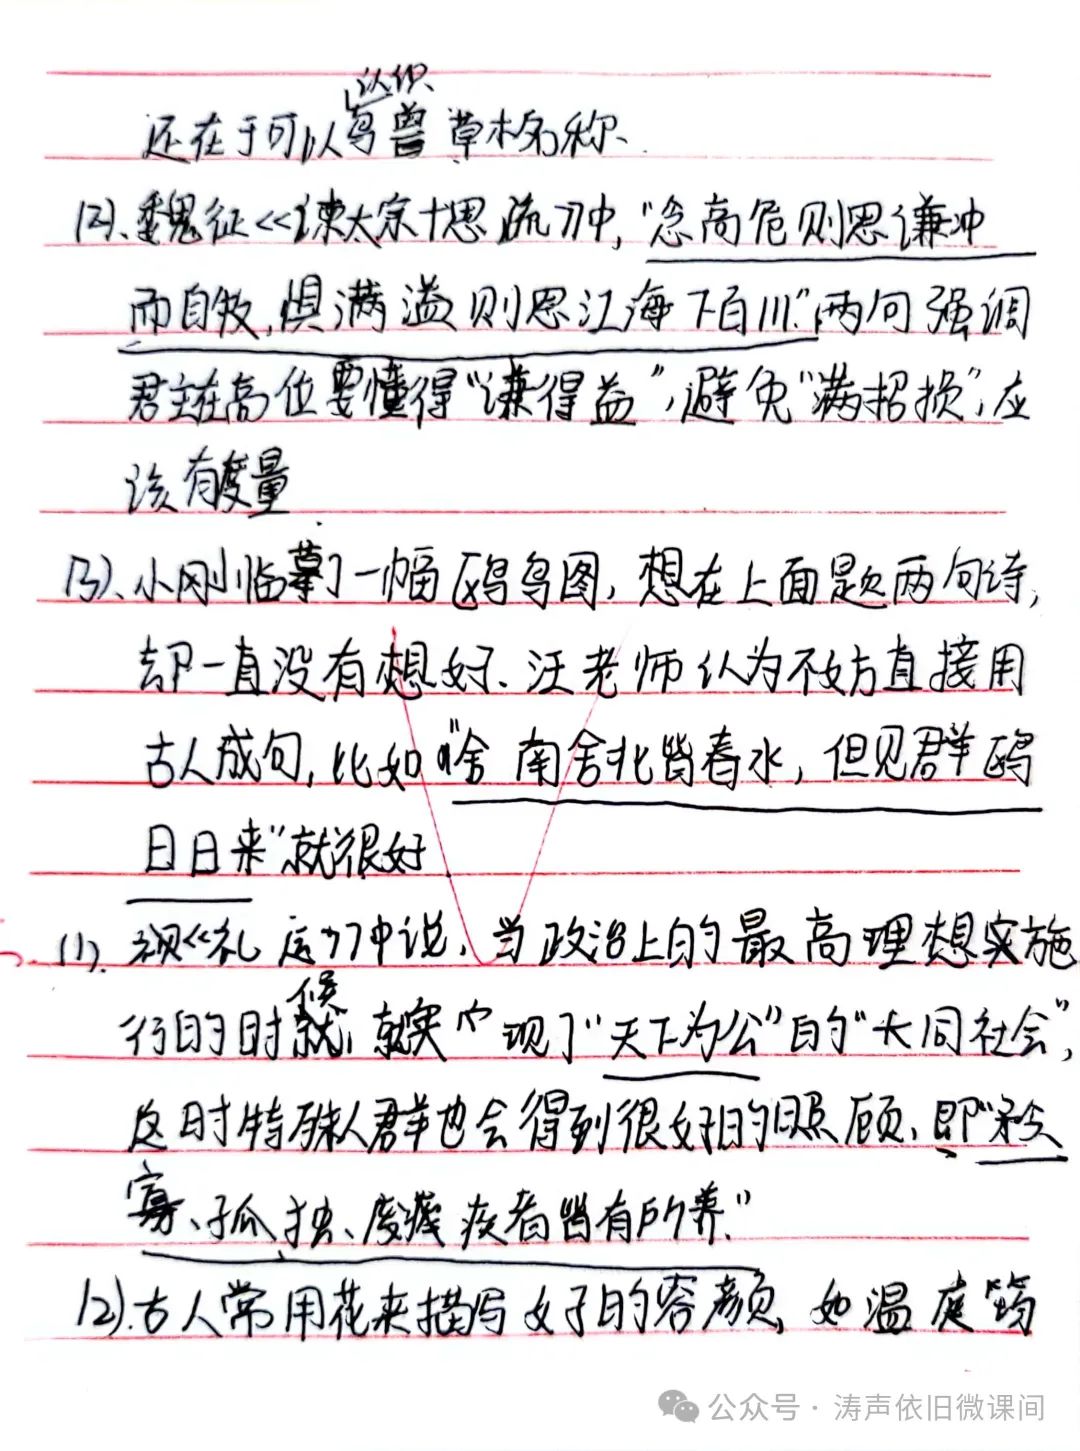 认识
还在于可以鸟兽草木名称、
(2)、魏征《谏太宗十思疏》中，"念高危则思谦冲
而自牧，惧满溢则思江海下百川"，两句强调
君主在高位要懂得"谦得益"，避免"满招损"，应
该有度量
(3)、小刚临摹了一幅鸥鸟图，想在上面题两句诗，
却一直没有想好、汪老师认为不妨直接用
古人成句，比如"舍南舍北皆春水，但见群鸥
日日来"就很好
(1)、《礼运》中说，当政治上的最高理想实施
候
行的时就，就实现了"天下为公"的"大同社会"，
这时特殊人群也会得到很好的照顾、即"矜
寡、孤独、废疾者皆有所养"
(2)、古人常用花来描写女子的容颜，如温庭筠
公众号·涛声依旧微课间